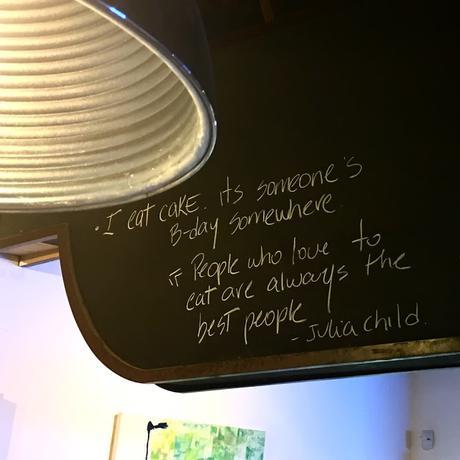 • I eat cake. its someone's
B-day somewhere.
People who love to
eat are always the
best people
- Julia Child.